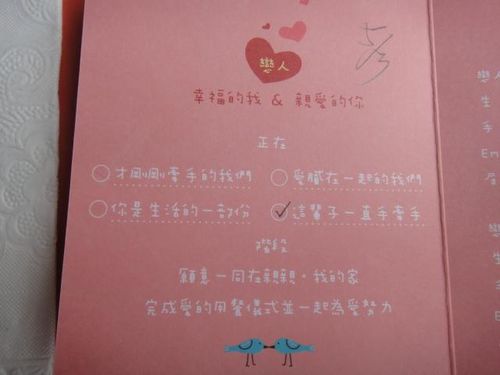 戀人
幸福的我 & 親愛的你
正在
才剛剛牽手的我們
愛膩在一起的我們
你是生活的一部份
這輩子一直手牽手
階段
願意一同在親親·我的家
完成愛的用餐儀式並一起為愛努力
戀人
生
手
Em
戀
生
手
E